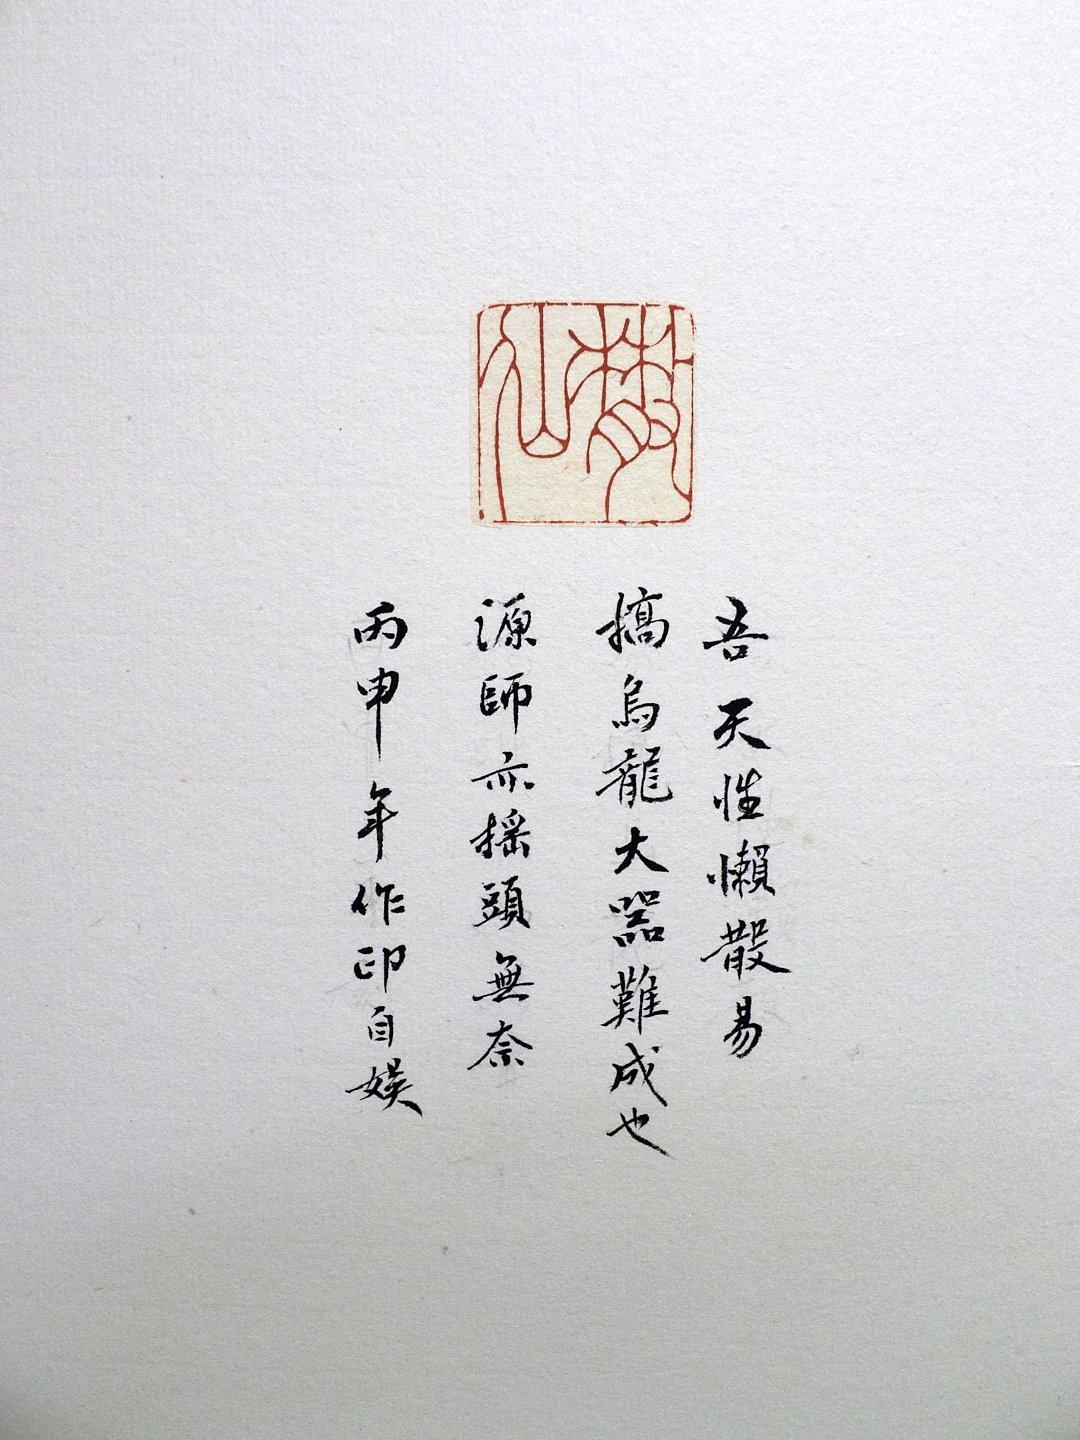 吾天性懶散易
搞烏龍大器難成也
源師亦搖頭無奈
丙申年作印自娛